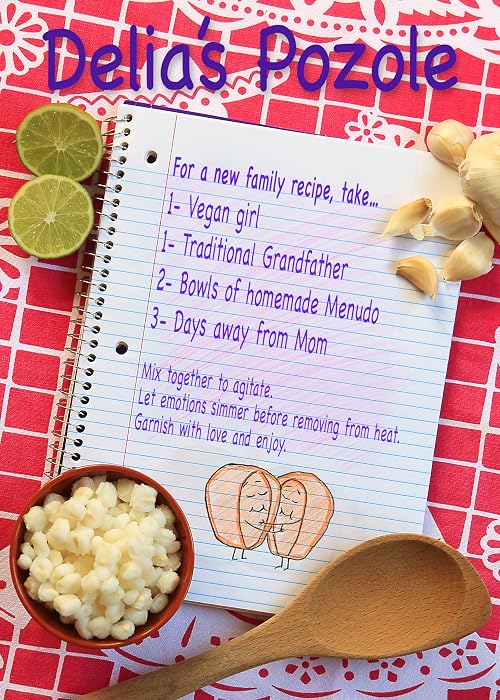 Delia's Pozole
For a new family recipe, take...
1- Vegan girl
1- Traditional Grandfather
2- Bowls of homemade Menudo
3- Days away from Mom
Mix together to agitate.
Let emotions simmer before removing from heat.
Garnish with love and enjoy.